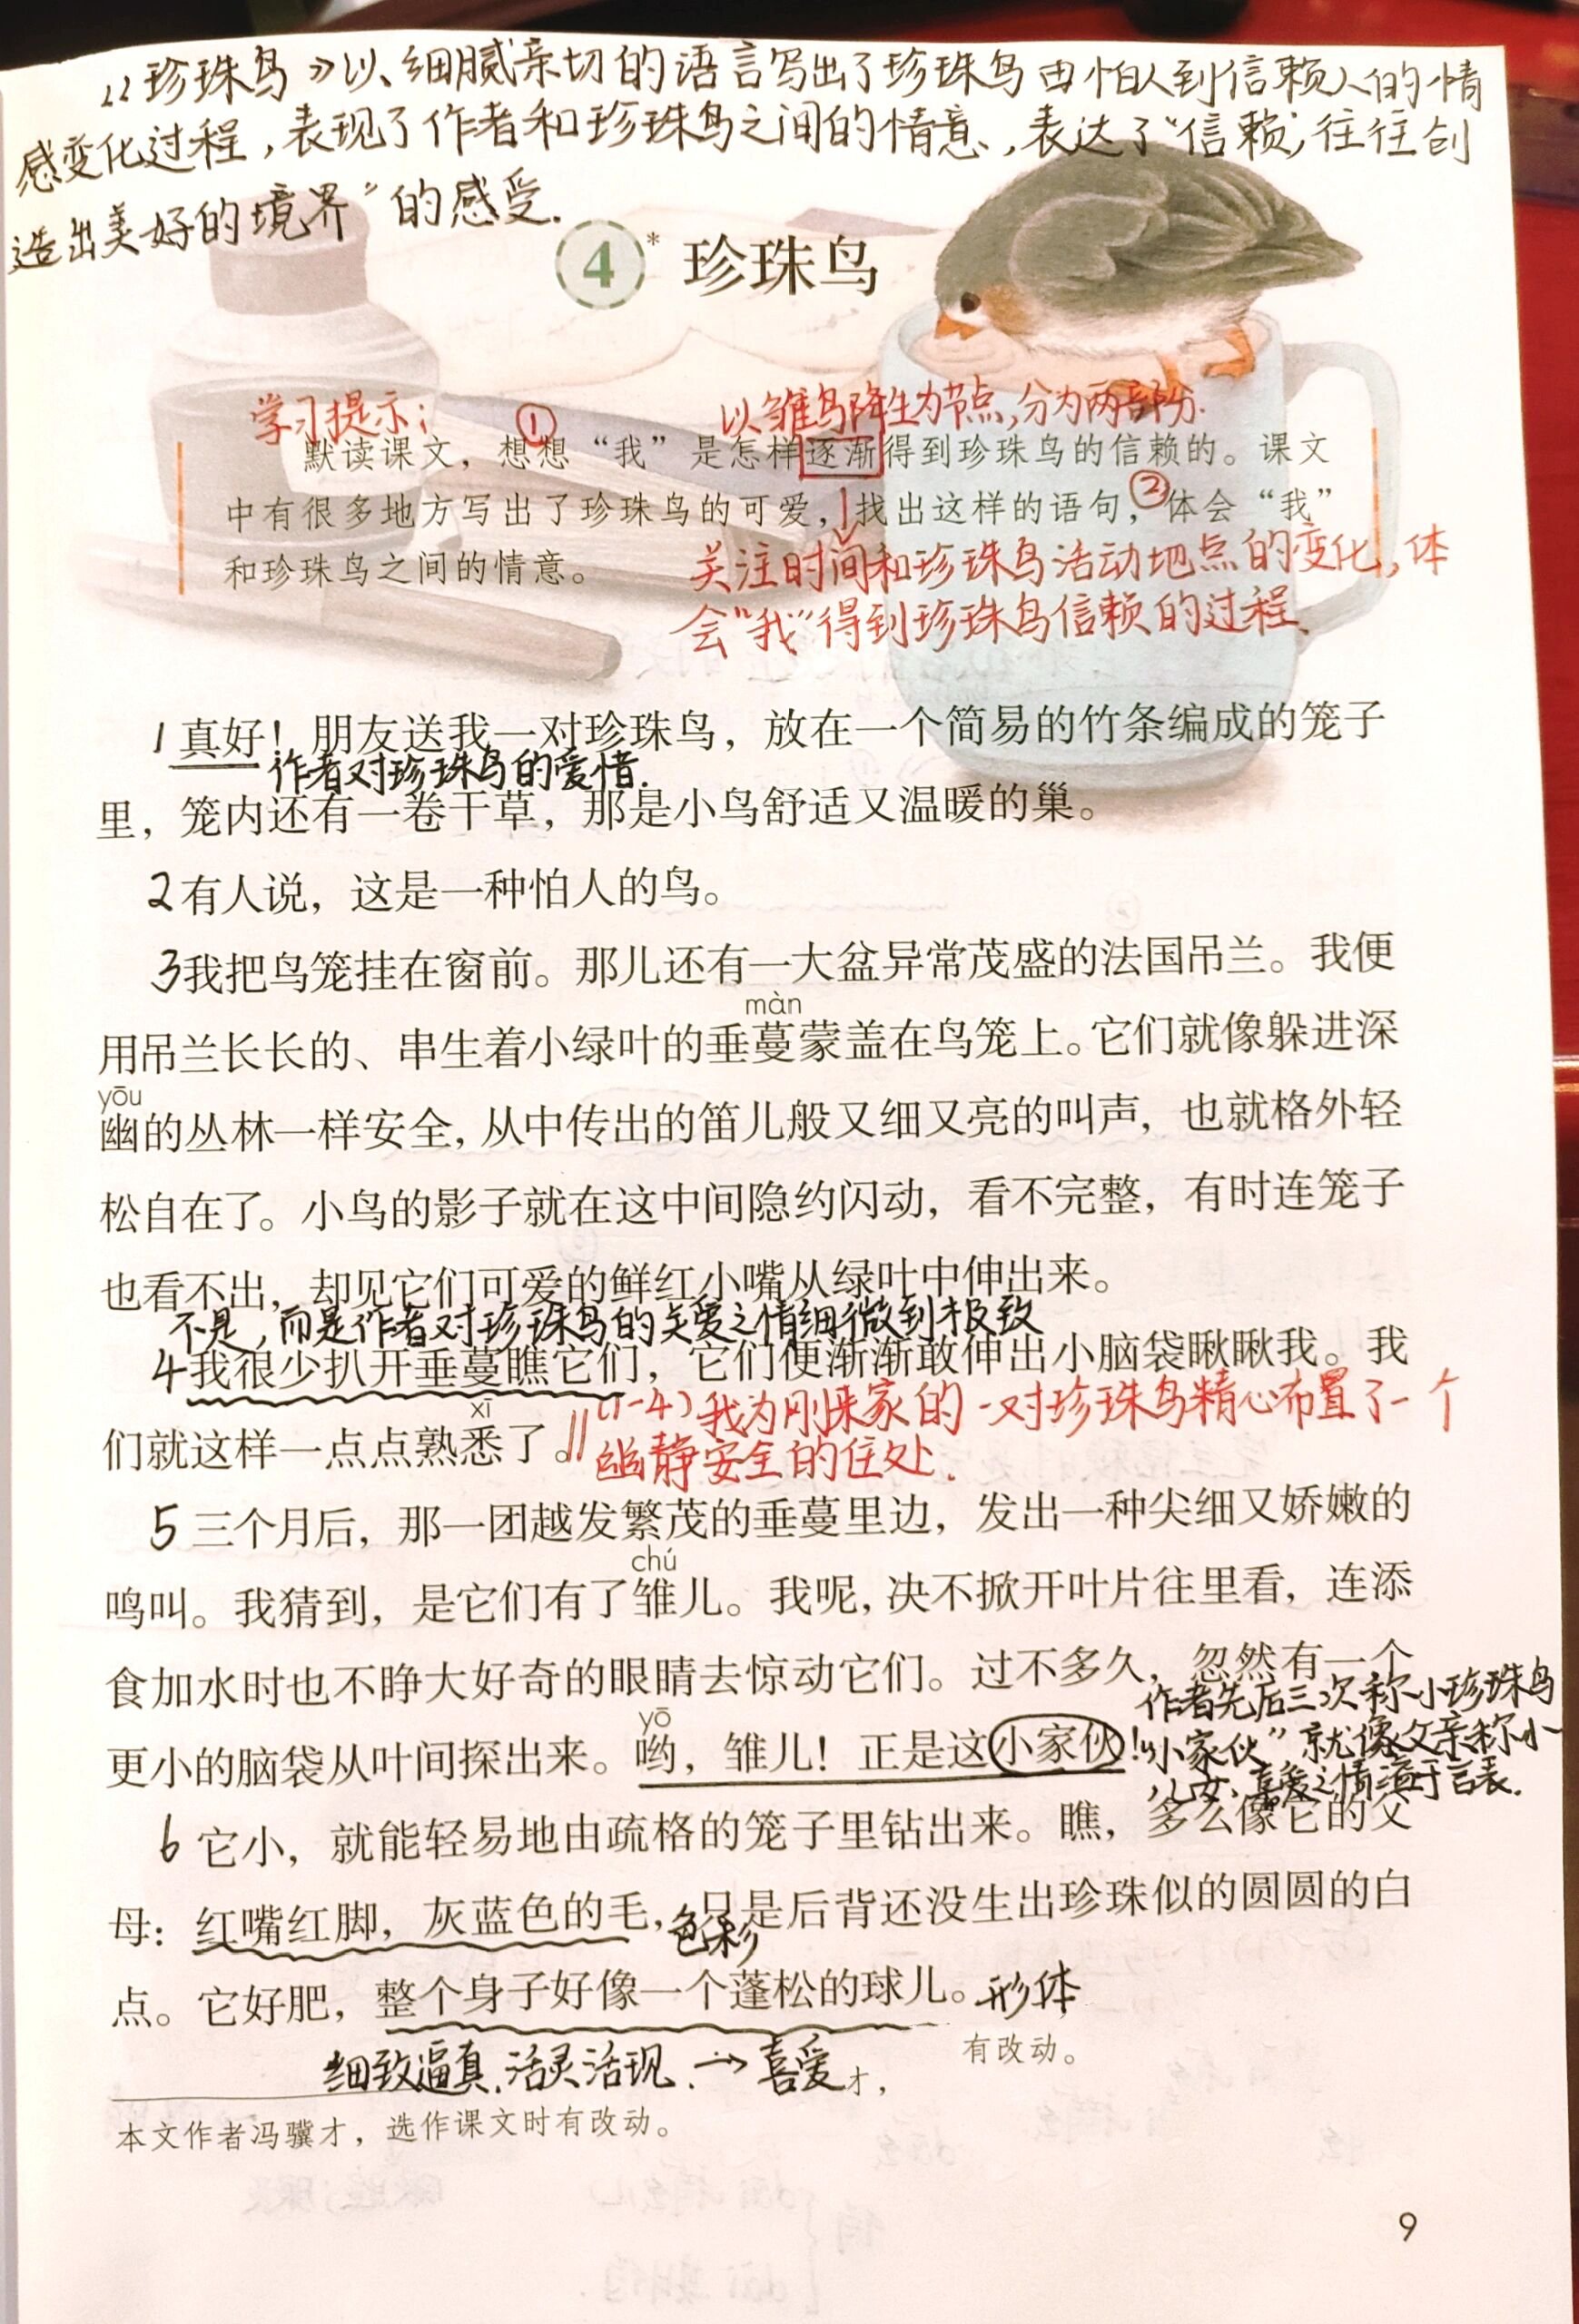 《珍珠鸟》以细腻亲切的语言写出了珍珠鸟由怕人到信赖人的情
感变化过程，表现了作者和珍珠鸟之间的情意，表达了“信赖，往往创
造出美好的境界”的感受.
4* 珍珠鸟
学习提示：
①
以雏鸟降生为节点,分为两部份.
默读课文，想想“我”是怎样逐渐得到珍珠鸟的信赖的。课文
中有很多地方写出了珍珠鸟的可爱，找出这样的语句，②体会“我”
和珍珠鸟之间的情意。
关注时间和珍珠鸟活动地点的变化,体
会“我”得到珍珠鸟信赖的过程.
1真好！朋友送我一对珍珠鸟，放在一个简易的竹条编成的笼子
作者对珍珠鸟的爱惜.
里，笼内还有一卷干草，那是小鸟舒适又温暖的巢。
2有人说，这是一种怕人的鸟。
3我把鸟笼挂在窗前。那儿还有一大盆异常茂盛的法国吊兰。我便
màn
用吊兰长长的、串生着小绿叶的垂蔓蒙盖在鸟笼上。它们就像躲进深
yōu
幽的丛林一样安全，从中传出的笛儿般又细又亮的叫声，也就格外轻
松自在了。小鸟的影子就在这中间隐约闪动，看不完整，有时连笼子
也看不出，却见它们可爱的鲜红小嘴从绿叶中伸出来。
不是，而是作者对珍珠鸟的关爱之情细微到极致
4我很少扒开垂蔓瞧它们，它们便渐渐敢伸出小脑袋瞅瞅我。我
xī
们就这样一点点熟悉了。‖(1-4)我为刚来家的一对珍珠鸟精心布置了一个
幽静安全的住处.
5三个月后，那一团越发繁茂的垂蔓里边，发出一种尖细又娇嫩的
chú
鸣叫。我猜到，是它们有了雏儿。我呢，决不掀开叶片往里看，连添
食加水时也不睁大好奇的眼睛去惊动它们。过不多久，忽然有一个
作者先后三次称小珍珠鸟
yō
更小的脑袋从叶间探出来。哟，雏儿！正是这小家伙！
“小家伙”，就像父亲称小
儿女，喜爱之情溢于言表.
6它小，就能轻易地由疏格的笼子里钻出来。瞧，多么像它的父
母：红嘴红脚，灰蓝色的毛，只是后背还没生出珍珠似的圆圆的白
色彩
点。它好肥，整个身子好像一个蓬松的球儿。形体
有改动。
细致逼真，活灵活现.→喜爱
才，
本文作者冯骥才，选作课文时有改动。
9